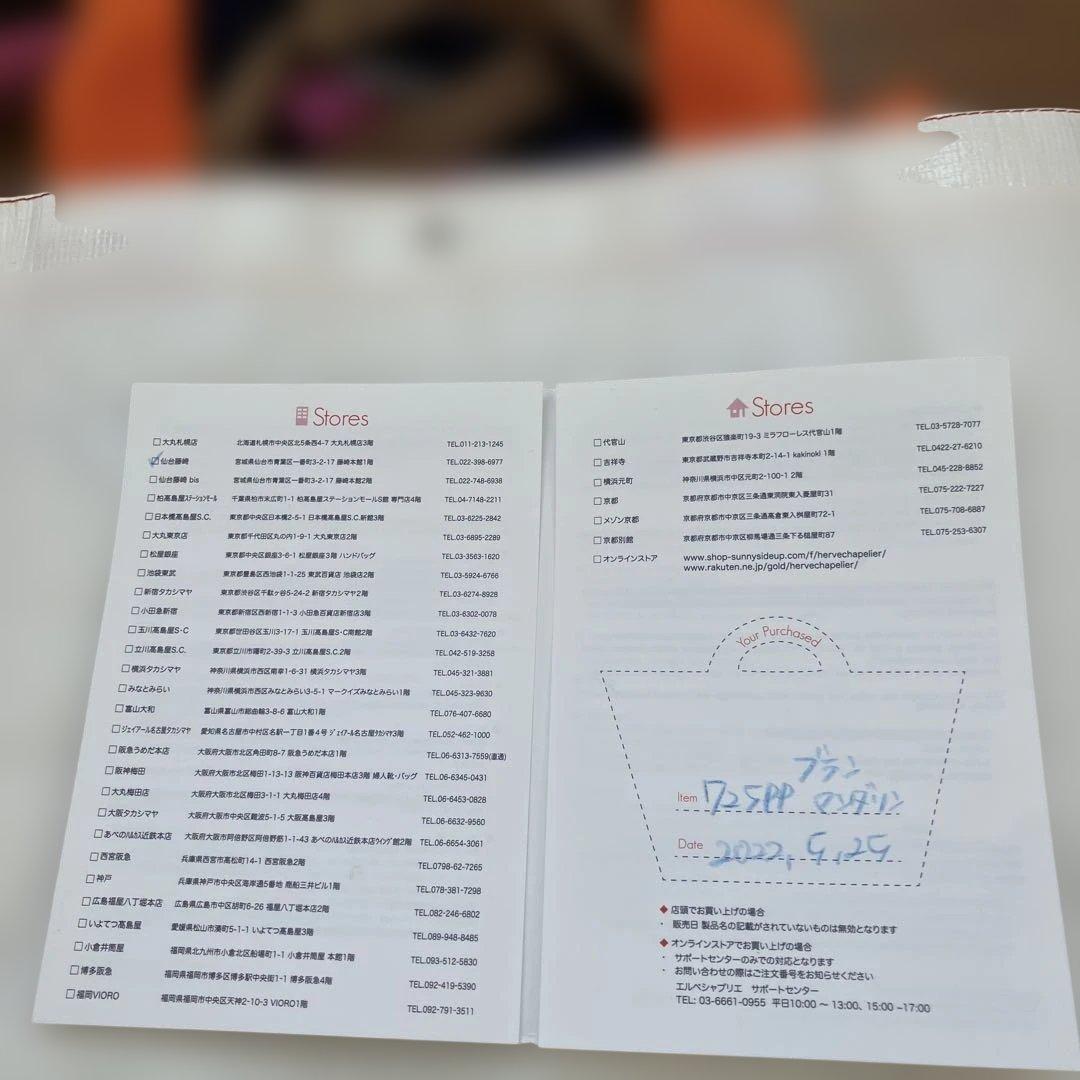 Stores
大丸札幌店 北海道札幌市中央区北5条西4-7 大丸札幌店3階 TEL.011-213-1245
仙台藤崎 宮城県仙台市青葉区一番町3-2-17 藤崎本館1階 TEL.022-398-6977
仙台藤崎 bis 宮城県仙台市青葉区一番町3-2-17 藤崎本館2階 TEL.022-748-6938
柏髙島屋ステーションモール 千葉県柏市末広町1-1 柏髙島屋ステーションモールS館 専門店4階 TEL.04-7148-2211
日本橋髙島屋S.C. 東京都中央区日本橋2-5-1 日本橋髙島屋S.C.新館3階 TEL.03-6225-2842
大丸東京店 東京都千代田区丸の内1-9-1 大丸東京店2階 TEL.03-6895-2289
松屋銀座 東京都中央区銀座3-6-1 松屋銀座3階 ハンドバッグ TEL.03-3563-1620
池袋東武 東京都豊島区西池袋1-1-25 東武百貨店 池袋店2階 TEL.03-5924-6766
新宿タカシマヤ 東京都渋谷区千駄ヶ谷5-24-2 新宿タカシマヤ2階 TEL.03-6274-8928
小田急新宿 東京都新宿区西新宿1-1-3 小田急百貨店新宿店3階 TEL.03-6302-0078
玉川髙島屋S・C 東京都世田谷区玉川3-17-1 玉川髙島屋S・C南館2階 TEL.03-6432-7620
立川髙島屋S.C. 東京都立川市曙町2-39-3 立川髙島屋S.C.2階 TEL.042-519-3258
横浜タカシマヤ 神奈川県横浜市西区南幸1-6-31 横浜タカシマヤ3階 TEL.045-321-3881
みなとみらい 神奈川県横浜市西区みなとみらい3-5-1 マークイズみなとみらい1階 TEL.045-323-9630
富山大和 富山県富山市総曲輪3-8-6 富山大和1階 TEL.076-407-6680
ジェイアール名古屋タカシマヤ 愛知県名古屋市中村区名駅一丁目1番4号 ジェイアール名古屋タカシマヤ3階 TEL.052-462-1000
阪急うめだ本店 大阪府大阪市北区角田町8-7 阪急うめだ本店1階 TEL.06-6313-7559(直通)
阪神梅田 大阪府大阪市北区梅田1-13-13 阪神百貨店梅田本店3階 婦人靴・バッグ TEL.06-6345-0431
大丸梅田店 大阪府大阪市北区梅田3-1-1 大丸梅田店4階 TEL.06-6453-0828
大阪タカシマヤ 大阪府大阪市中央区難波5-1-5 大阪髙島屋3階 TEL.06-6632-9560
あべのハルカス近鉄本店 大阪府大阪市阿倍野区阿倍野筋1-1-43 あべのハルカス近鉄本店ウイング館2階 TEL.06-6654-3061
西宮阪急 兵庫県西宮市高松町14-1 西宮阪急2階 TEL.0798-62-7265
神戸 兵庫県神戸市中央区海岸通5番地 商船三井ビル1階 TEL.078-381-7298
広島福屋八丁堀本店 広島県広島市中区胡町6-26 福屋八丁堀本店2階 TEL.082-246-6802
いよてつ髙島屋 愛媛県松山市湊町5-1-1 いよてつ髙島屋3階 TEL.089-948-8485
小倉井筒屋 福岡県北九州市小倉北区船場町1-1 小倉井筒屋 本館1階 TEL.093-512-5830
博多阪急 福岡県福岡市博多区博多駅中央街1-1 博多阪急4階 TEL.092-419-5390
福岡VIORO 福岡県福岡市中央区天神2-10-3 VIORO1階 TEL.092-791-3511
Stores
代官山 東京都渋谷区猿楽町19-3 ミラフローレス代官山1階 TEL.03-5728-7077
吉祥寺 東京都武蔵野市吉祥寺本町2-14-1 kakinoki 1階 TEL.0422-27-6210
横浜元町 神奈川県横浜市中区元町2-100-1 2階 TEL.045-228-8852
京都 京都府京都市中京区三条通東洞院東入菱屋町31 TEL.075-222-7227
メゾン京都 京都府京都市中京区三条通高倉東入桝屋町72-1 TEL.075-708-6887
京都別館 京都府京都市中京区柳馬場通三条下る槌屋町87 TEL.075-253-6307
オンラインストア www.shop-sunnysideup.com/f/hervechapelier/
www.rakuten.ne.jp/gold/hervechapelier/
Your Purchased
ブラン
Item 725PP マンダリン
Date 2022,5,25
◆ 店頭でお買い上げの場合
・ 販売日 製品名の記載がされていないものは無効となります
◆ オンラインストアでお買い上げの場合
・ サポートセンターのみでの対応となります
・ お問い合わせの際はご注文番号をお知らせください
エルベシャプリエ サポートセンター
TEL: 03-6661-0955 平日10:00 ～ 13:00、15:00 ~17:00